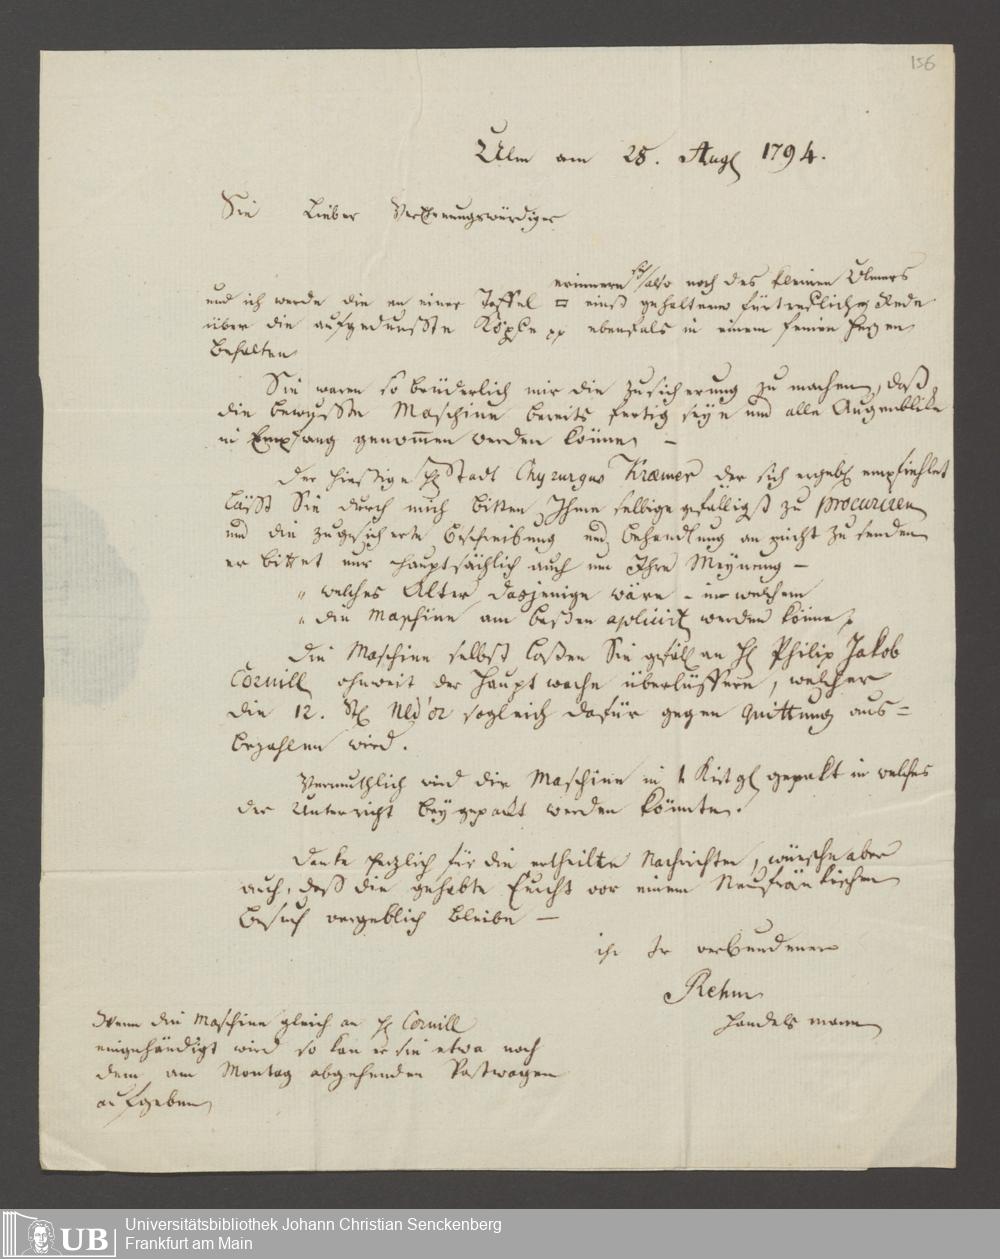 156
Ulm am 28. Aug 1794.
Sie Lieber Verehrungswürdiger
erinnern sich also noch des kleinen Ulmers
und ich werde die an einer Taffel □ einst gehaltene fürtrefliche Rede
über die aufgedunsste Köpfe pp ebenfals in einem feinen Herzen
behalten
Sie waren so brüderlich mir die Zusicherung zu machen, daß
die bewusste Maschine bereits fertig seÿe und alle Augenblike
in Empfang genommen werden könne –
Der hiesige H Stadt Chyrurgus Kræmer der sich ergebt empfiehlet
lässt Sie durch mich bitten Ihme selbige gefälligst zu procuriren
und die zugesicherte Beschreibung und Behandlung an mich zu senden
er bittet nur hauptsächlich auch um Ihre Meÿnung –
" welches Alter dasjenige wäre – in welchem
" die Maschine am besten aplicirt werden könne
Die Maschine selbst lassen Sie gefäl an H Philip Jakob
Cornill ohnweit der Hauptwache überlüffern, welcher
die 12. St Nld'or sogleich dafür gegen Quittung aus=
bezahlen wird.
Vermuthlich wird die Maschine in 1 Kistgl gepakt in welches
der Unterricht beÿgepackt werden könnte.
Danke herzlich für die ertheilte Nachrichten, wünsche aber
auch, daß die gehabte Furcht vor einem Neufränkischen
Besuch vergeblich bleibe –
ihr Ir verbundener
Rehm
Handelsmann
Wenn die Maschine gleich an H Cornill
eingehändigt wird so kan er sie etwa noch
dem am Montag abgehenden Postwagen
aufgeben
UB
Universitätsbibliothek Johann Christian Senckenberg
Frankfurt am Main